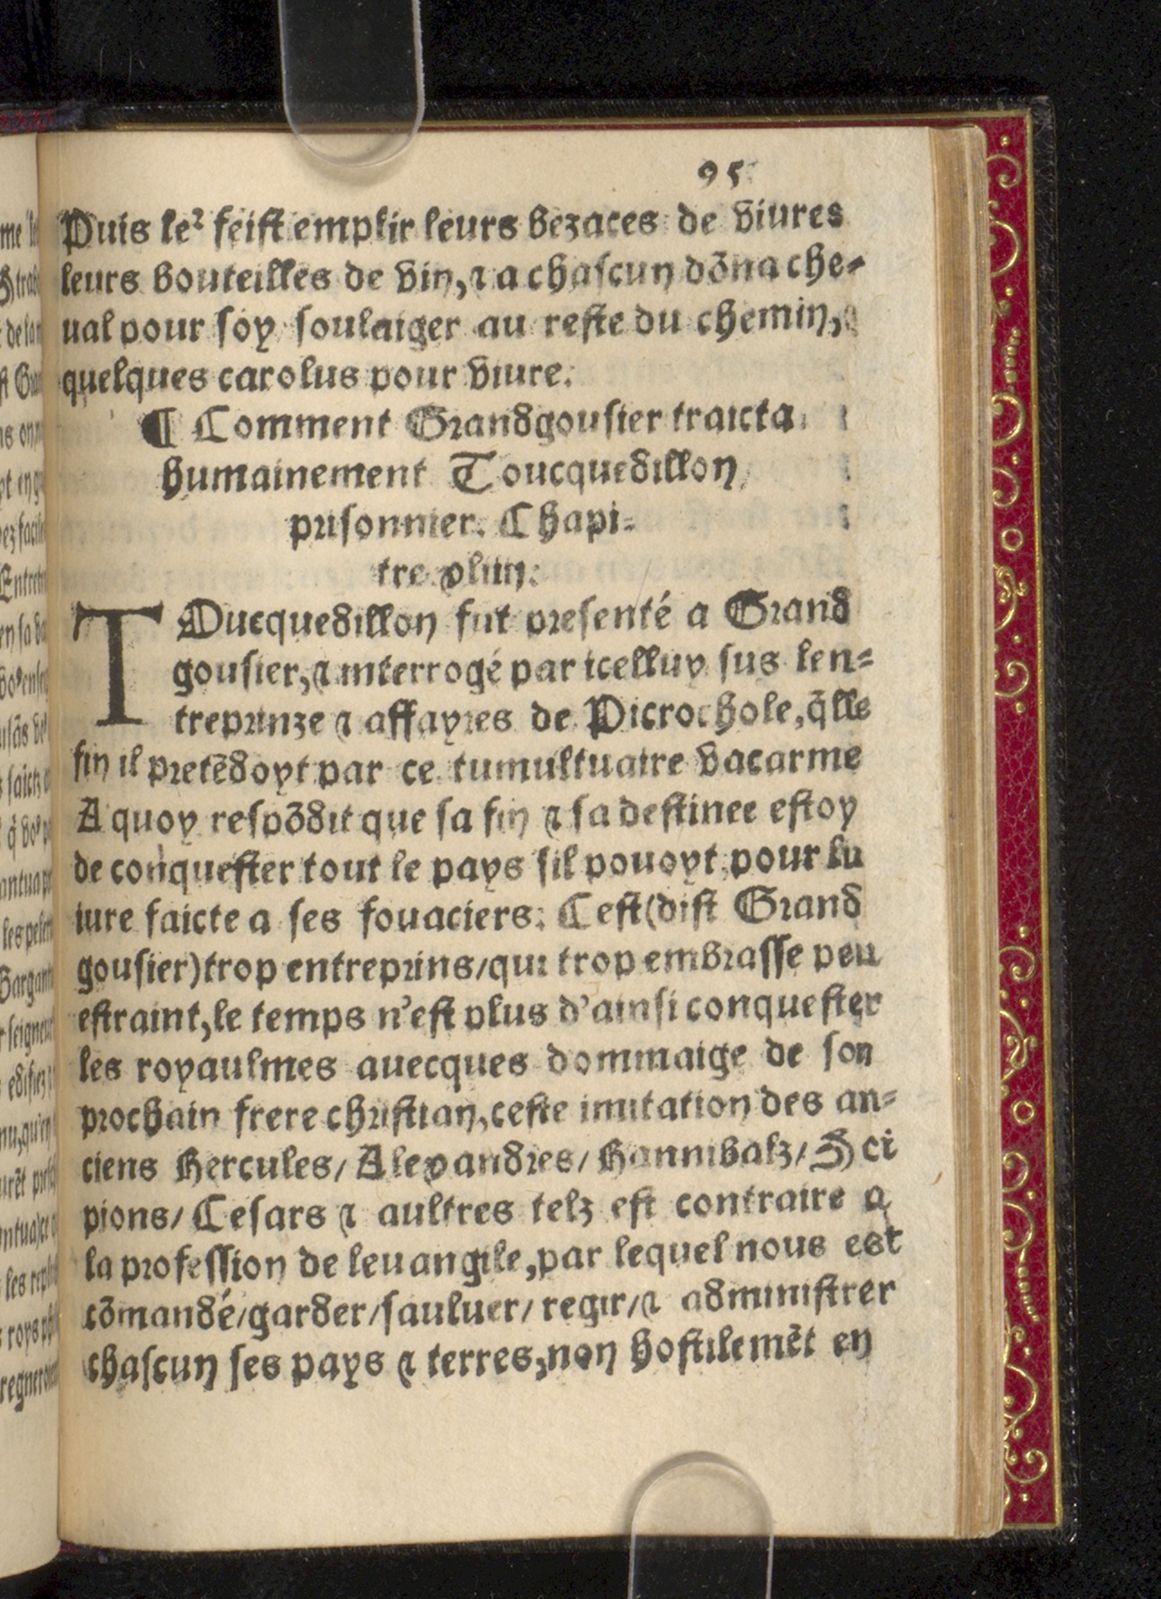 95
Puis leꝛ feist emplir leurs bezaces de viures
leurs bouteilles de vin, ⁊ a chascun dõna che-
ual pour soy soulaiger au reste du chemin, ⁊
quelques carolus pour viure.
¶ Comment Grandgousier traicta
humainement Toucquedillon
prisonnier. Chapi-
tre xliiij.
TOucquedillon fut presenté a Grand
gousier, ⁊ interrogé par icelluy sus len-
treprinze ⁊ affayres de Picrochole, q̃lle
fin il pretẽdoyt par ce tumultuaire vacarme
A quoy respõdit que sa fin ⁊ sa destinee estoy
de conquester tout le pays sil pouoyt, pour lu
iure faicte a ses fouaciers. Cest (dist Grand
gousier) trop entreprins/qui trop embrasse peu
estraint, le temps n'est plus d'ainsi conquester
les royaulmes auecques dommaige de son
prochain frere christian, ceste imitation des an-
ciens Hercules/ Alexandres/ Hannibalz/ Sci
pions/ Cesars ⁊ aultres telz est contraire a
la profession de leuangile, par lequel nous est
cõmandé/garder/sauluer/ regir/⁊ administrer
chascun ses pays ⁊ terres, non hostilemẽt en